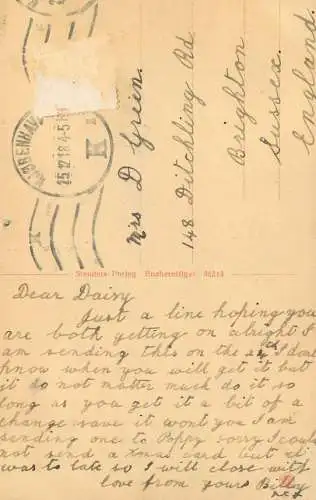 KJØBENHAVN
15.12.18.4-5
K
Mrs D Green.
148 Ditchling Rd
Brighton
Sussex.
England.
Stenders Forlag Eneberettiget
Dear Daisy
Just a line hoping you
are both getting on alright I
am sending this on the I dont
know when you will get it but
it do not matter much do it so
long as you get it a bit of a
change save it wont you I am
sending one to Poppy sorry I could
not send a Xmas card but it
was to late so I will close with
love from yours Billy